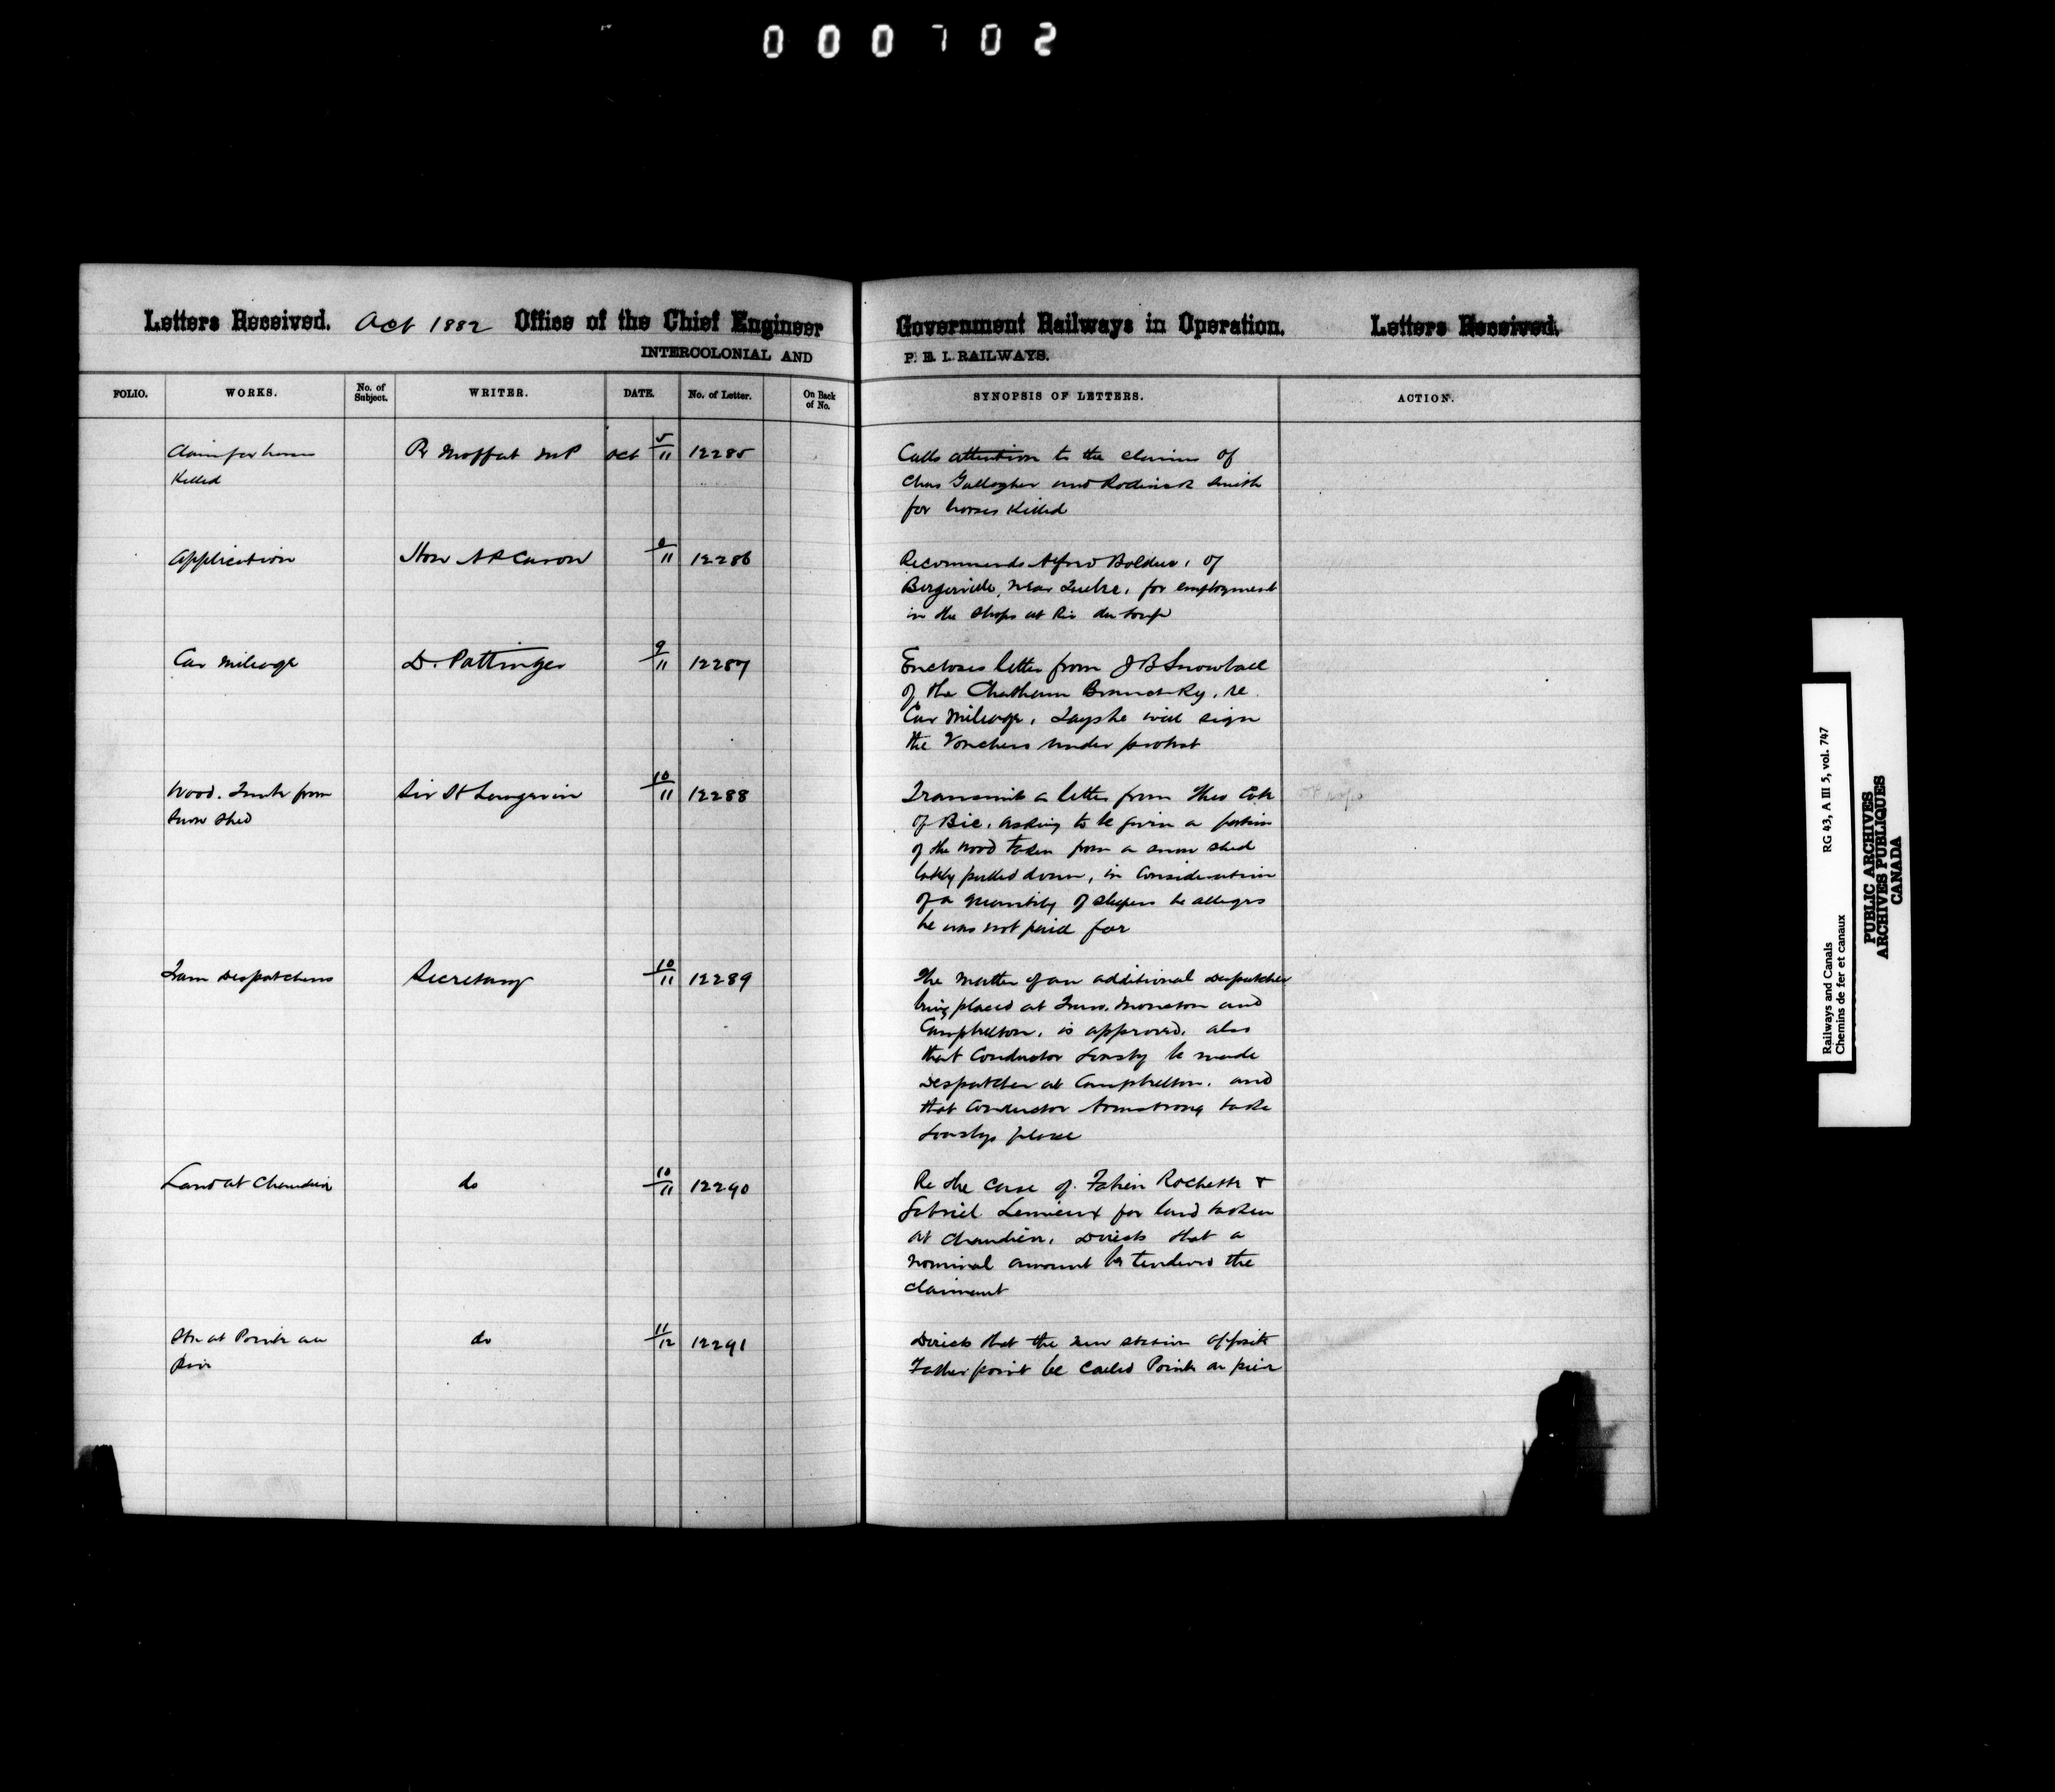 000702
Letters Received. Oct 1882 Office of the Chief Engineer Government Railways in Operation. Letters Received.
INTERCOLONIAL AND P. E. I. RAILWAYS.
FOLIO. WORKS. No. of Subject. WRITER. DATE. No. of Letter. On Back of No. SYNOPSIS OF LETTERS. ACTION.
Claim for horses
Killed
R Moffat MP Oct 5/11 12285
Calls attention to the claims of
Chas Gallagher and Roderick Smith
for horses Killed
Application Hon A P Caron /11 12286
Recommends Alfred Bolduc, of
Bergerville, near Quebec, for employment
in the shops at Riv du Loup
Car Mileage D. Pottinger 9/11 12287
Encloses letter from J B Snowball
of the Chatham Branch Ry, re
Car Mileage, Says he will sign
the Vouchers under protest
Wood. from
Snow Shed
Sir H Langevin 10/11 12288
Transmits a letter from Theo
of Bic, asking to be given a portion
of the wood taken from a snow shed
lately pulled down, in Consideration
of a quantity of sleepers he alleges
he was not paid for
Train Despatchers Secretary 10/11 12289
The matter of an additional Despatcher
being placed at Truro, Moncton and
Campbellton, is approved, also
that Conductor be made
Despatcher at Campbellton, and
that Conductor Armstrong take
place
Land at Chaudiere do 10/11 12290
Re the case of Fabien Rochette &
Gabriel Lemieux for land taken
at Chaudiere, Directs that a
nominal amount be tendered the
claimant
Stn at Pointe au
Pere
do 11/12 12291
Directs that the new station opposite
Father point be called Pointe au pere
Railways and Canals RG 43, A III 5, vol. 747
Chemins de fer et canaux
PUBLIC ARCHIVES
ARCHIVES PUBLIQUES
CANADA